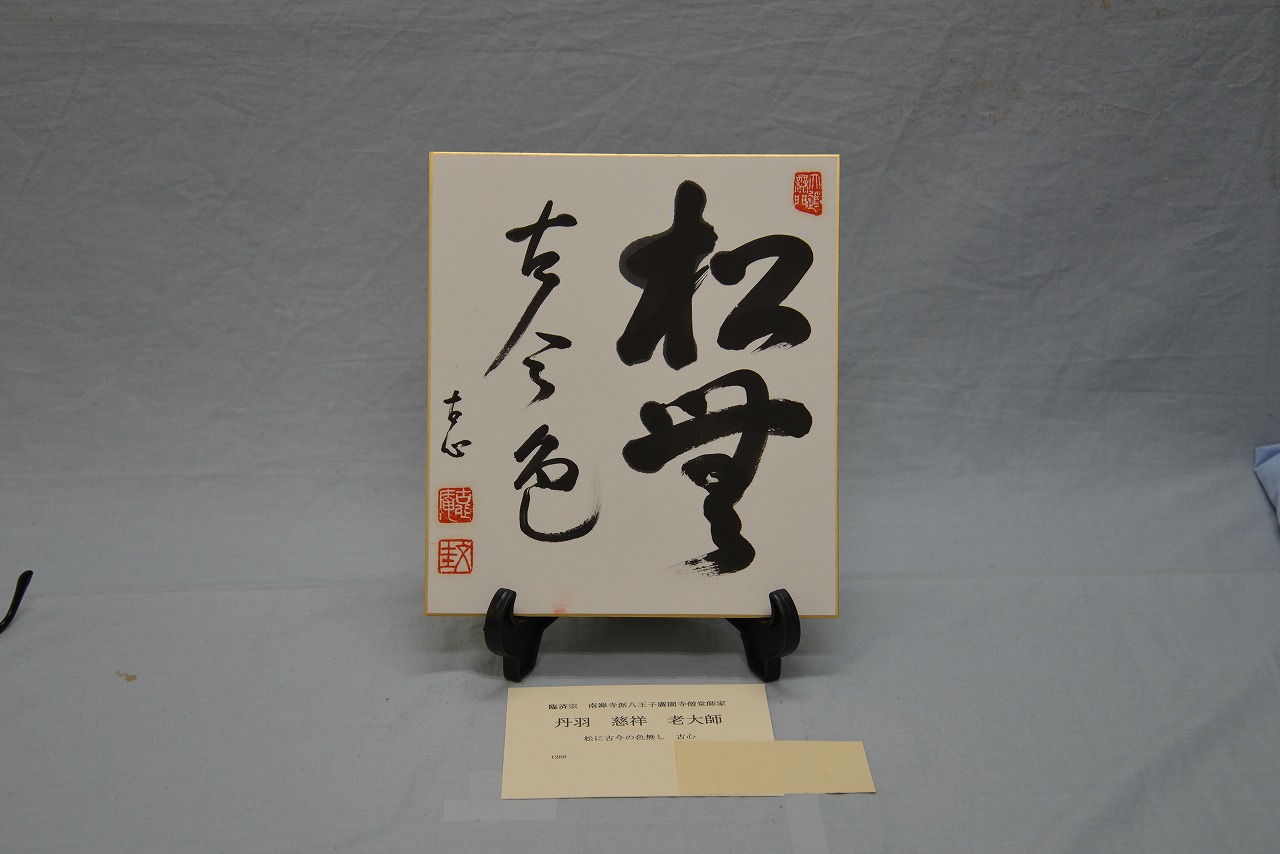 松無
古今色
古心
臨済宗　南禅寺派八王子廣園寺僧堂師家
丹羽　慈祥　老大師
松に古今の色無し　古心
1288